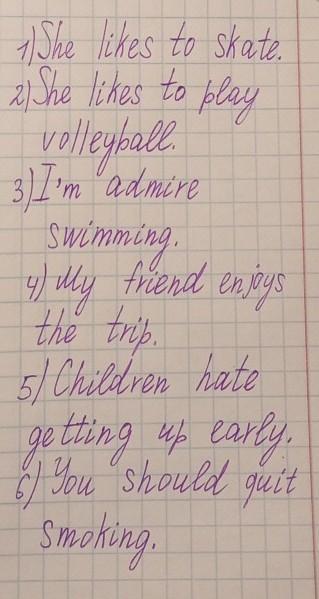 1) She likes to skate.
2) She likes to play
volleyball.
3) I'm admire
swimming.
4) My friend enjoys
the trip.
5) Children hate
getting up early.
6) You should quit
smoking.